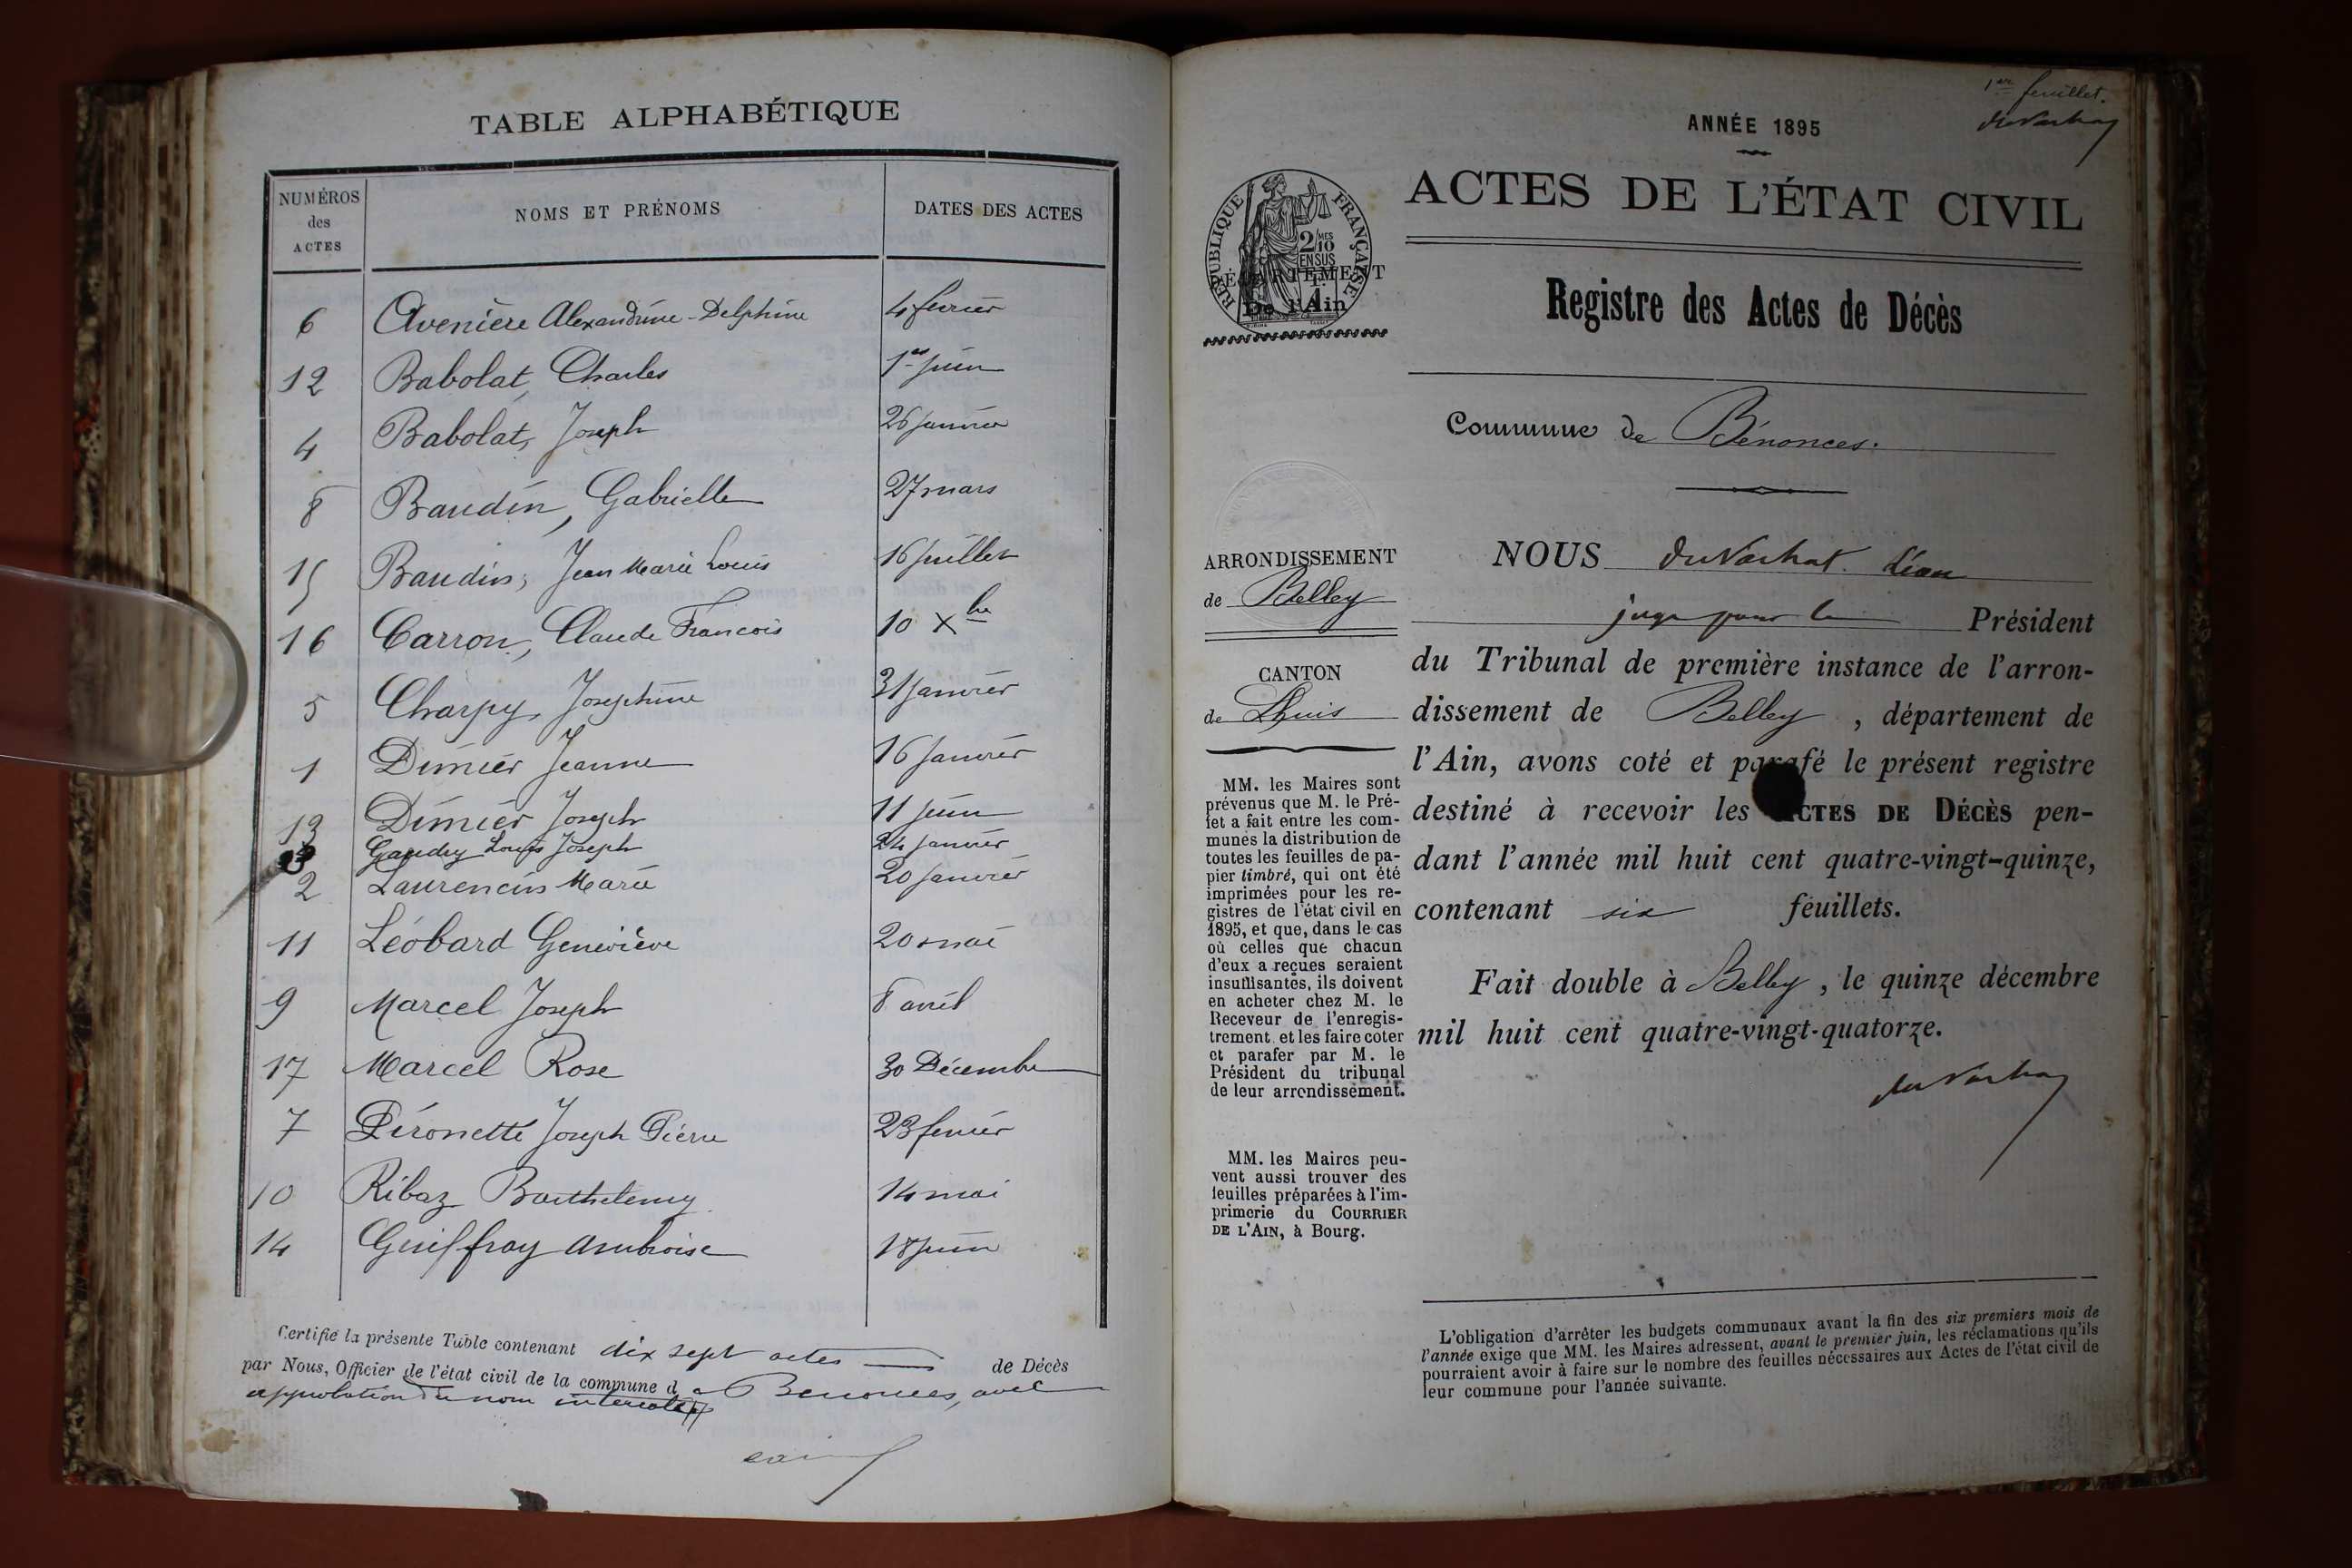 TABLE ALPHABÉTIQUE
NUMÉROS des ACTES NOMS ET PRÉNOMS DATES DES ACTES
6 Avenière Alexandrine-Delphine 4 février
12 Babolat, Charles 1er juin
4 Babolat, Joseph 26 janvier
8 Baudin, Gabrielle 27 mars
15 Baudin, Jean Marie Louis 16 juillet
16 Carron, Claude François 10 Xbre
5 Charpy, Josephine 31 janvier
1 Dimier Jeanne 16 janvier
13 Dimier Joseph 11 juin
Gaudry Louis Joseph 24 janvier
2 Laurencin Marie 20 janvier
11 Léobard Geneviève 20 mai
9 Marcel Joseph 8 avril
17 Marcel Rose 30 Décembre
7 Péronette Joseph Pierre 23 fevrier
10 Ribaz Barthelemy 14 mai
14 Guiffray Ambroise 18 juin
Certifié la présente Table contenant dix sept actes de Décès
par Nous, Officier de l'état civil de la commune d e Benonces, avec
approbation du nom intercalé
1er feuillet.
ANNÉE 1895
ACTES DE L'ÉTAT CIVIL
RÉPUBLIQUE FRANÇAISE
2/10MES
EN SUS
DÉPARTEMENT
De l'Ain
Registre des Actes de Décès
Commune de Bénonces.
ARRONDISSEMENT
de Belley
CANTON
de Lhuis
MM. les Maires sont
prévenus que M. le Pré-
fet a fait entre les com-
munes la distribution de
toutes les feuilles de pa-
pier timbré, qui ont été
imprimées pour les re-
gistres de l'état civil en
1895, et que, dans le cas
où celles que chacun
d'eux a reçues seraient
insuffisantes, ils doivent
en acheter chez M. le
Receveur de l'enregis-
trement et les faire coter
et parafer par M. le
Président du tribunal
de leur arrondissement.
MM. les Maires peu-
vent aussi trouver des
feuilles préparées à l'im-
primerie du COURRIER
DE L'AIN, à Bourg.
NOUS du Vachat. Léon
juge pour le Président
du Tribunal de première instance de l'arron-
dissement de Belley, département de
l'Ain, avons coté et parafé le présent registre
destiné à recevoir les ACTES DE DÉCÈS pen-
dant l'année mil huit cent quatre-vingt-quinze,
contenant six feuillets.
Fait double à Belley, le quinze décembre
mil huit cent quatre-vingt-quatorze.
L'obligation d'arrêter les budgets communaux avant la fin des six premiers mois de
l'année exige que MM. les Maires adressent, avant le premier juin, les réclamations qu'ils
pourraient avoir à faire sur le nombre des feuilles nécessaires aux Actes de l'état civil de
leur commune pour l'année suivante.